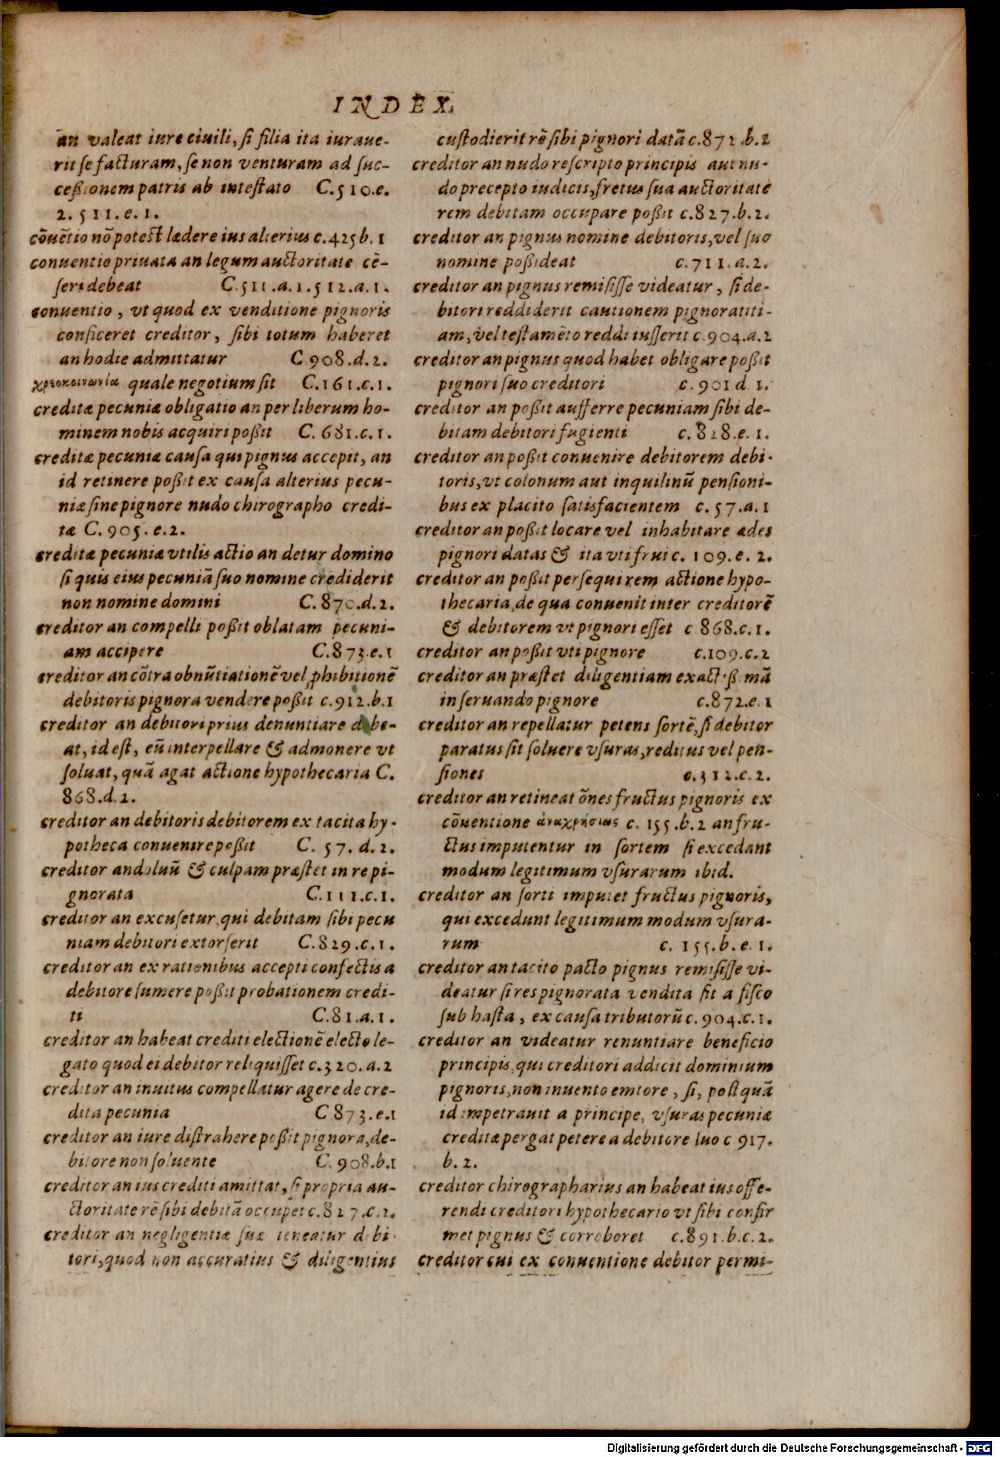 INDEX.
an valeat iure ciuili, ſi filia ita iuraue-
rit ſe facturam, ſe non venturam ad ſuc-
ceßionem patris ab inteſtato C.510.e.
2. 511. e. 1.
cōuētio nō poteſt lædere ius alterius c.425 b. 1
conuentio priuata an legum auctoritate cē-
ſeri debeat C.511.a.1.512.a.1.
conuentio, vt quod ex venditione pignoris
conficeret creditor, ſibi totum haberet
an hodie admittatur C 908.d.2.
χρεοκοινωνία quale negotium ſit C.161.c.1.
creditæ pecuniæ obligatio an per liberum ho-
minem nobis acquiri poßit C. 681.c.1.
creditæ pecuniæ cauſa qui pignus accepit, an
id retinere poßit ex cauſa alterius pecu-
niæ ſine pignore nudo chirographo credi-
tæ C. 905. e.2.
creditæ pecuniæ vtilis actio an detur domino
ſi quis eius pecuniā ſuo nomine crediderit
non nomine domini C.870.d.2.
creditor an compelli poßit oblatam pecuni-
am accipere C.873.e.1
creditor an cōtra obnūtiationē vel ꝓhibitionē
debitoris pignora vendere poßit c.912.b.1
creditor an debitori prius denuntiare debe-
at, id eſt, eū interpellare & admonere vt
ſoluat, quā agat actione hypothecaria C.
868.d.2.
creditor an debitoris debitorem ex tacita hy-
potheca conuenire poßit C. 57. d.2.
creditor an dolū & culpam præſtet in re pi-
gnorata C.111.c.1.
creditor an excuſetur, qui debitam ſibi pecu
niam debitori extorſerit C.829.c.1.
creditor an ex rationibus accepti confectis a
debitore ſumere poßit probationem credi-
ti C.81.a.1.
creditor an habeat crediti electionē electo le-
gato quod ei debitor reliquiſſet c.320.a.2
creditor an inuitus compellatur agere de cre-
dita pecunia C 873.e.1
creditor an iure diſtrahere poßit pignora, de-
bitore non ſoluente C. 908.b.1
creditor an ius crediti amittat, ſi propria au-
ctoritate rē ſibi debitā occupet c.827.c.2.
creditor an negligentiæ ſuæ teneatur debi-
tori, quod non accuratius & diligentius
cuſtodierit rē ſibi pignori datā c.872.b.2
creditor an nudo reſcripto principis aut nu-
do precepto iudicis, fretus ſua auctoritate
rem debitam occupare poßit c.827.b.2.
creditor an pignus nomine debitoris, vel ſuo
nomine poßideat c.711.a.2.
creditor an pignus remiſiſſe videatur, ſi de-
bitori reddiderit cautionem pignoratiti-
am, vel teſtamēto reddi iuſſerit c.904.a.2
creditor an pignus quod habet obligare poßit
pignori ſuo creditori c.901 d 1.
creditor an poßit aufferre pecuniam ſibi de-
bitam debitori fugienti c.828.e.1.
creditor an poßit conuenire debitorem debi-
toris, vt colonum aut inquilinū penſioni-
bus ex placito ſatisfacientem c. 57.a.1
creditor an poßit locare vel inhabitare ædes
pignori datas & ita vti frui c. 109.e. 2.
creditor an poßit perſequi rem actione hypo-
thecaria, de qua conuenit inter creditorē
& debitorem vt pignori eſſet c 868.c.1.
creditor an poßit vti pignore c.109.c.2
creditor an præſtet diligentiam exactiß mā
in ſeruando pignore c.872.e.1
creditor an repellatur petens ſortē, ſi debitor
paratus ſit ſoluere vſuras, reditus vel pen-
ſiones c.312.c.2.
creditor an retineat ōnes fructus pignoris ex
cōuentione ἀναχρήσεως c. 155.b.2 an fru-
ctus imputentur in ſortem ſi excedant
modum legitimum vſurarum ibid.
creditor an ſorti imputet fructus pignoris,
qui excedunt legitimum modum vſura-
rum c. 155.b.e.1.
creditor an tacito pacto pignus remiſiſſe vi-
deatur ſi res pignorata vendita ſit a fiſco
ſub haſta, ex cauſa tributorū c.904.c.1.
creditor an videatur renuntiare beneficio
principis, qui creditori addicit dominium
pignoris, non inuento emtore, ſi, poſtquā
id impetrauit a principe, vſuras pecuniæ
creditæ pergat petere a debitore ſuo c 917.
b.2.
creditor chirographarius an habeat ius offe-
rendi creditori hypothecario vt ſibi confir
met pignus & corroboret c.891.b.c.2.
creditor cui ex conuentione debitor permi-
Digitalisierung gefördert durch die Deutsche Forschungsgemeinschaft - DFG